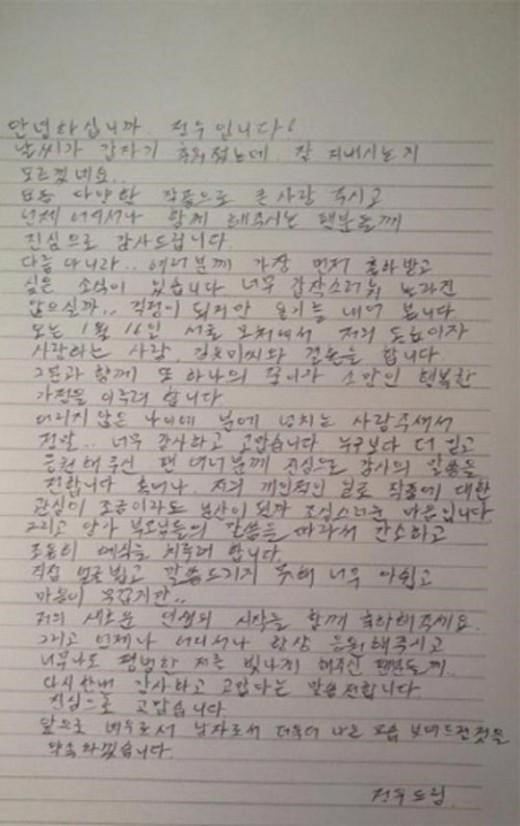 안녕하십니까. 건우입니다!
날씨가 갑자기 추워졌는데. 잘 지내시는지
모르겠네요..
모두 다양한 작품으로 큰사랑 주시고
언제 어디서나 함께 해주시는 팬분들께
진심으로 감사드립니다.
다름 아니라.. 여러분께 가장 먼저 축하받고
싶은 소식이 있습니다 너무 갑작스러워 놀라진
않으실까.. 걱정이 되지만 용기를 내어 봅니다
오는 1월 16일 서울 모처에서 저의 도료이자
사랑하는 사람. 김유미씨와 결혼을 합니다
그분과 함께 또 하나의 꿈이자 소망인 행복한
가정을 이루려 합니다.
어리지 않은 나이에 분에 넘치는 사랑주셔서
정말.. 너무 감사하고 고맙습니다 누구보다 더 믿고
응원해 주신 팬 여러분께 진심으로 감사의 말씀을
전합니다 혹여나. 저의 개인적인 일로 작품에 대한
관심이 조금이라도 분산이 될까 조심스러운 마음입니다
그리고 양가 부모님들의 말씀을 따라서 간소하고
조용히 예식을 치루려 합니다.
직접 얼굴 뵙고 말씀드리지 못해 너무 아쉽고
마음이 무겁지만..
저의 새로운 인생의 시작을 함께 축하해주세요.
그리고 언제나 어디서나 항상 응원해주시고
너무나도 평범한 저를 빛나게 해주신 팬분들께..
다시한번 감사하고 고맙다는 말씀전합니다
진심으로 고맙습니다
앞으로 배우로서 남자로서 더욱더 나은 모습 보여드릴것을
약속하겠습니다.
드림.